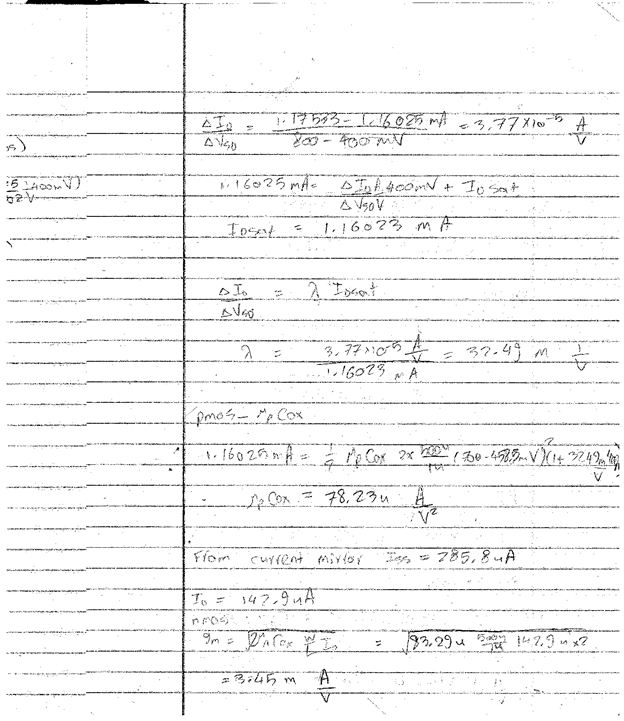 ΔI_D / ΔV_SD = (1.17533 - 1.16025 mA) / (800 - 400 mV) = 3.77 x 10^-5 A/V
s)
400mV)
1.16025 mA = ΔI_DA / ΔV_SDV 400mV + I_Dsat
I_Dsat = 1.16023 mA
ΔI_D / ΔV_SD = λ I_Dsat
λ = (3.77x10^-5 A/V) / (1.16023 mA) = 32.49 m 1/V
pmos - μ_p Cox
1.16025 mA = 1/2 μ_p Cox 2x 500u/1u (700-458.3mV)^2 (1+ 32.49m/V
μ_p Cox = 78.23u A/V^2
From current mirror I_SS = 285.8uA
I_D = 142.9uA
nmos
g_m = √(2μ_n Cox W/L I_D) = √(83.29u 500u/1u 142.9u x2)
= 3.45 m A/V